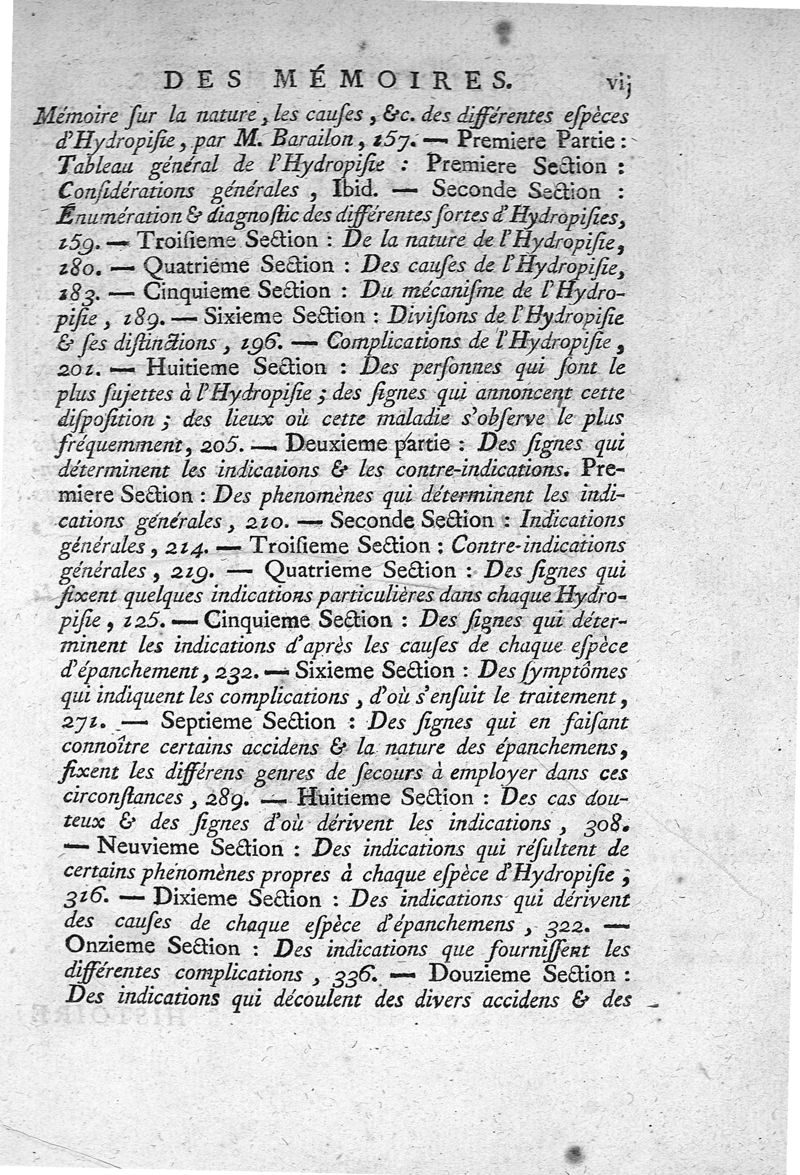 DES MÉMOIRES. vij
Mémoire ſur la nature, les cauſes, &c. des différentes eſpèces
d'Hydropiſie, par M. Barailon, 157. — Premiere Partie :
Tableau général de l'Hydropiſie : Premiere Section :
Conſidérations générales, Ibid. — Seconde Section :
Énumération & diagnoſtic des différentes ſortes d'Hydropiſies,
159. — Troiſieme Section : De la nature de l'Hydropiſie,
180. — Quatrieme Section : Des cauſes de l'Hydropiſie,
183. — Cinquieme Section : Du mécaniſme de l'Hydro-
piſie, 189. — Sixieme Section : Diviſions de l'Hydropiſie
& ſes diſtinctions, 196. — Complications de l'Hydropiſie,
201. — Huitieme Section : Des perſonnes qui ſont le
plus ſujettes à l'Hydropiſie ; des ſignes qui annoncent cette
diſpoſition ; des lieux où cette maladie s'obſerve le plus
fréquemment, 205. — Deuxieme partie : Des ſignes qui
déterminent les indications & les contre-indications. Pre-
miere Section : Des phenomènes qui déterminent les indi-
cations générales, 210. — Seconde Section : Indications
générales, 214. — Troiſieme Section : Contre-indications
générales, 219. — Quatrieme Section : Des ſignes qui
fixent quelques indications particulières dans chaque Hydro-
piſie, 125. — Cinquieme Section : Des ſignes qui déter-
minent les indications d'après les cauſes de chaque eſpèce
d'épanchement, 232. — Sixieme Section : Des ſymptômes
qui indiquent les complications, d'où s'enſuit le traitement,
271. — Septieme Section : Des ſignes qui en faiſant
connoître certains accidens & la nature des épanchemens,
fixent les différens genres de ſecours à employer dans ces
circonſtances, 289. — Huitieme Section : Des cas dou-
teux & des ſignes d'où dérivent les indications, 308.
— Neuvieme Section : Des indications qui réſultent de
certains phénomènes propres à chaque eſpèce d'Hydropiſie ;
316. — Dixieme Section : Des indications qui dérivent
des cauſes de chaque eſpèce d'épanchemens, 322. —
Onzieme Section : Des indications que fourniſſent les
différentes complications, 336. — Douzieme Section :
Des indications qui découlent des divers accidens & des